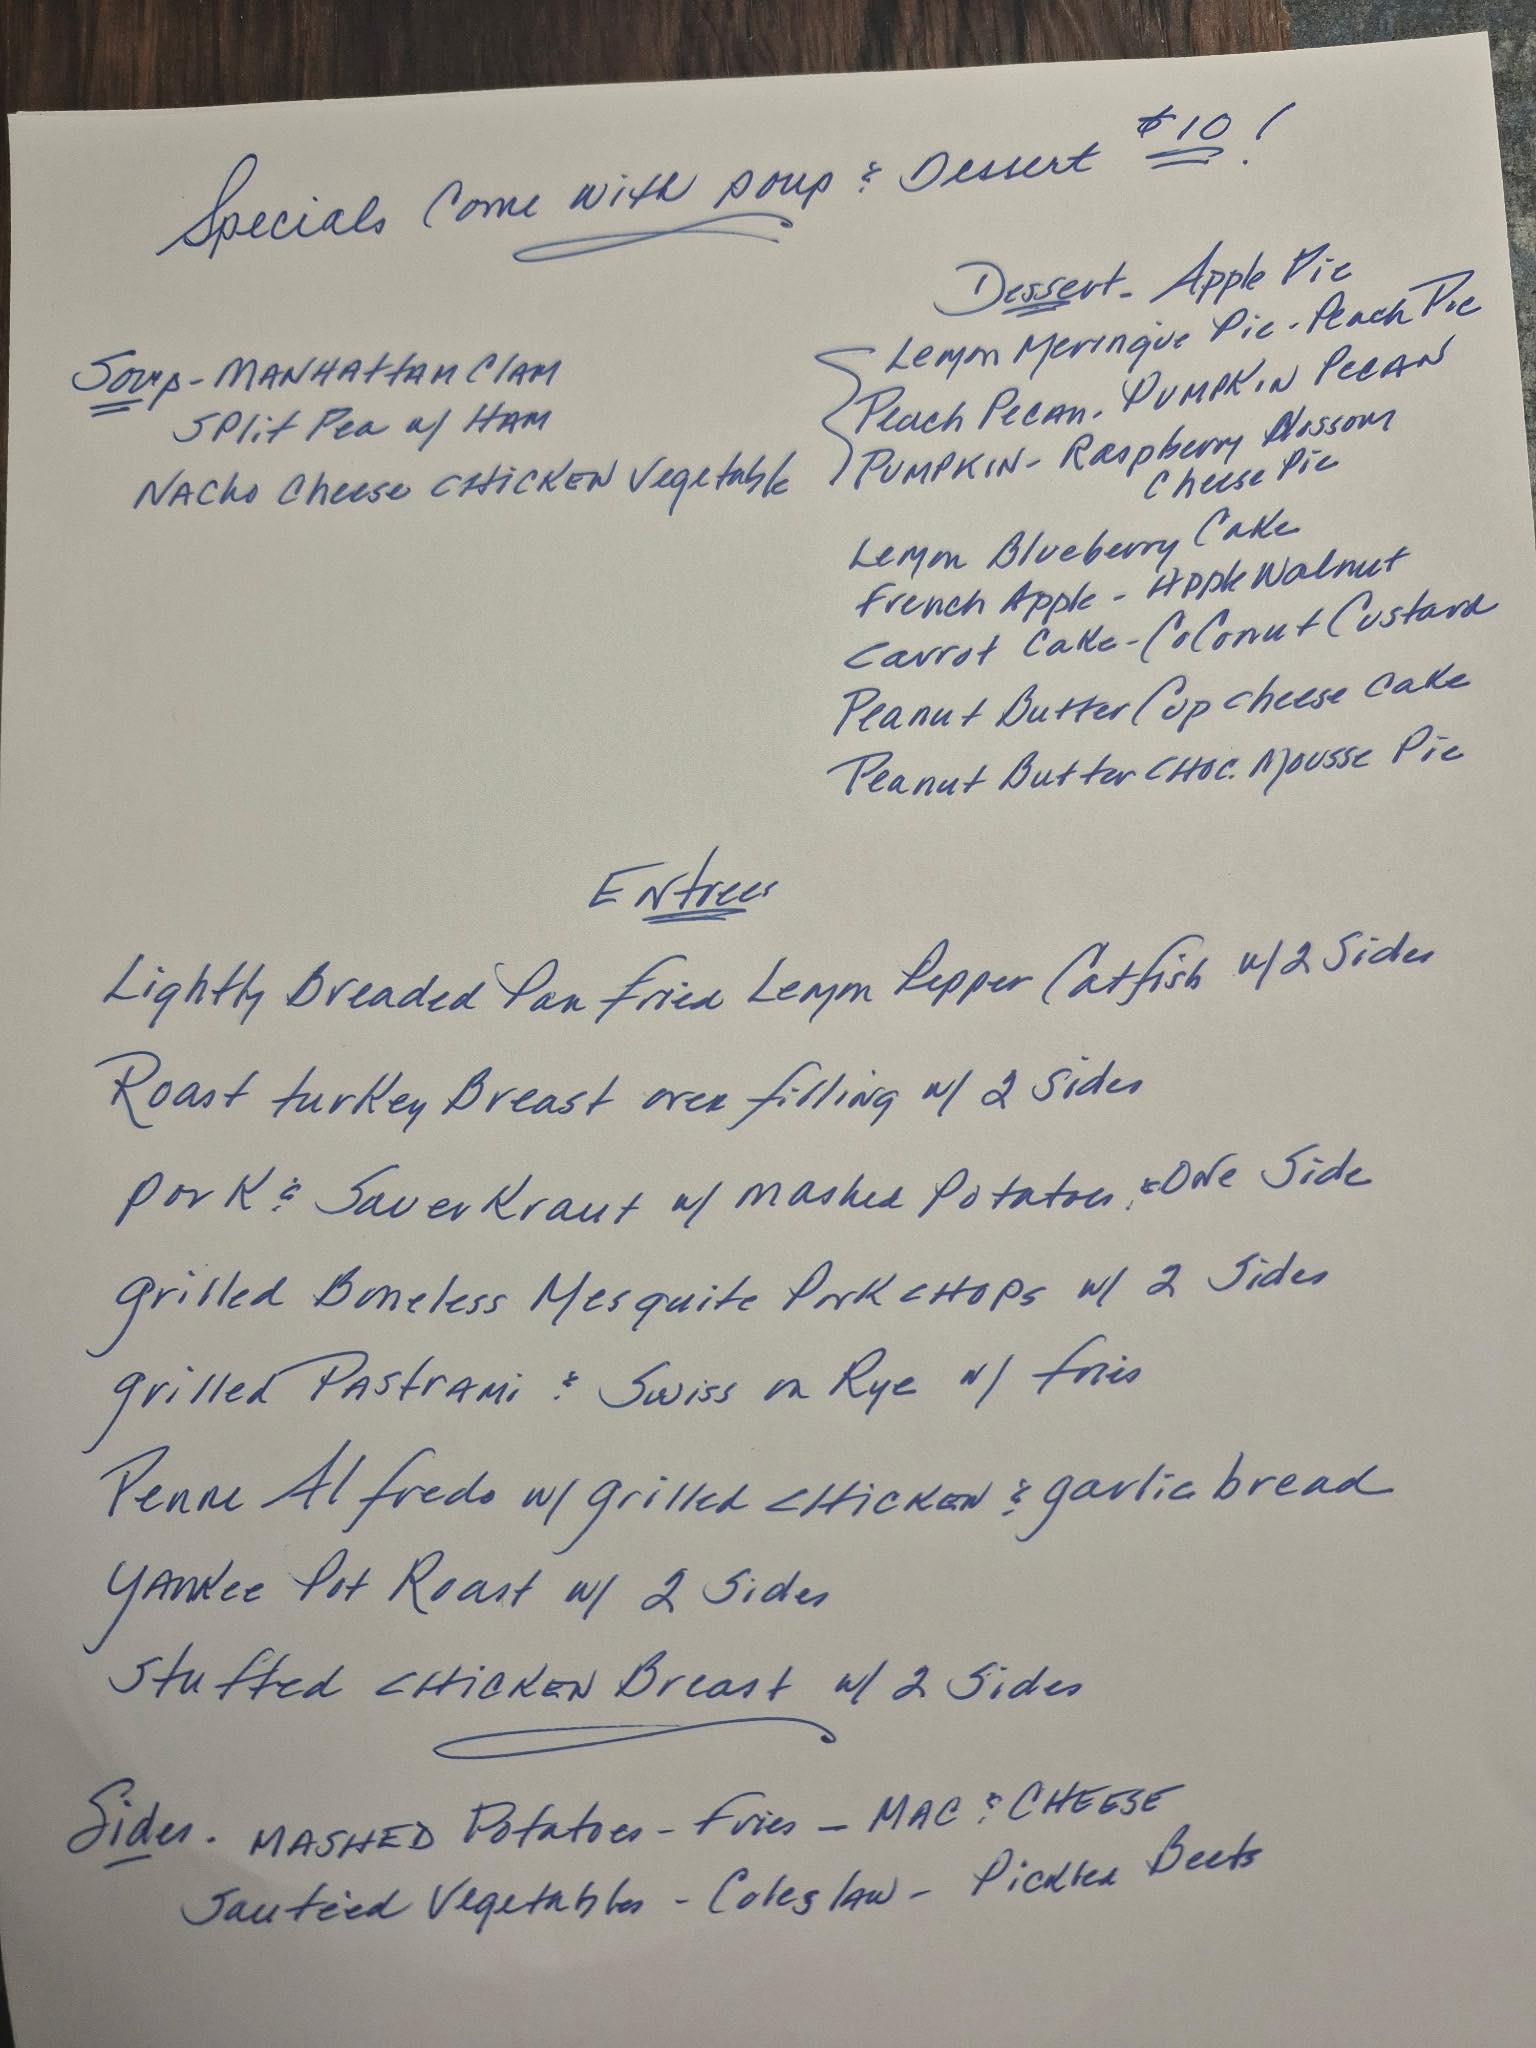 Specials Come with soup & Dessert $10!
Soup - MANHATTAN Clam
Split Pea w/ HAM
NACHO Cheese CHICKEN Vegetable
Dessert - Apple Pie
Lemon Meringue Pie - Peach Pie
Peach Pecan - PUMPKIN PECAN
PUMPKIN - Raspberry Blossom
Cheese Pie
Lemon Blueberry Cake
French Apple - Apple Walnut
Carrot Cake - Coconut Custard
Peanut Butter Cup Cheese Cake
Peanut Butter CHOC. Mousse Pie
Entrees
Lightly Breaded Pan Fried Lemon Pepper Catfish w/ 2 Sides
Roast turkey Breast over filling w/ 2 Sides
Pork & SauerKraut w/ mashed Potatoes & ONe Side
grilled Boneless Mesquite Pork CHOPS w/ 2 Sides
grilled PAStrAMi & Swiss on Rye w/ fries
Penne Alfredo w/ grilled CHICKEN & garlic bread
YANKee Pot Roast w/ 2 Sides
Stuffed CHICKEN Breast w/ 2 Sides
Sides. MASHED Potatoes - Fries - MAC & CHEESE
Sauteéd Vegetables - Coleslaw - Pickled Beets